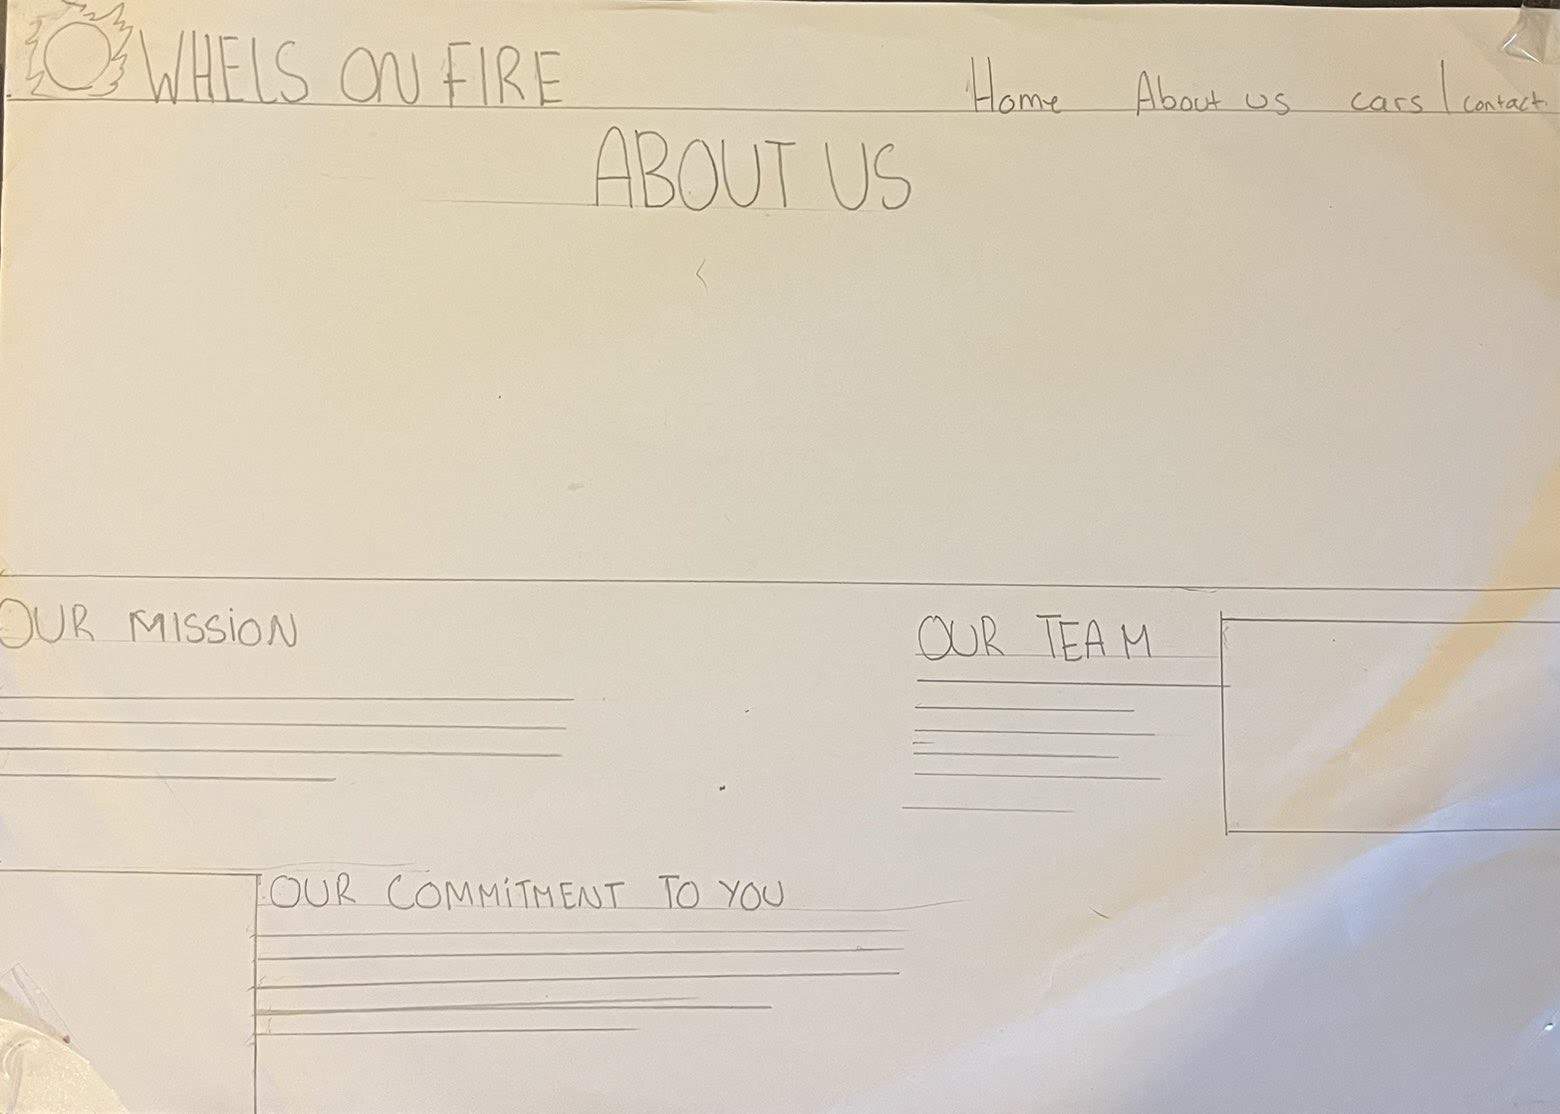 WHELS ON FIRE
Home About us cars | contact
ABOUT US
OUR MISSION
OUR TEAM
OUR COMMITMENT TO YOU